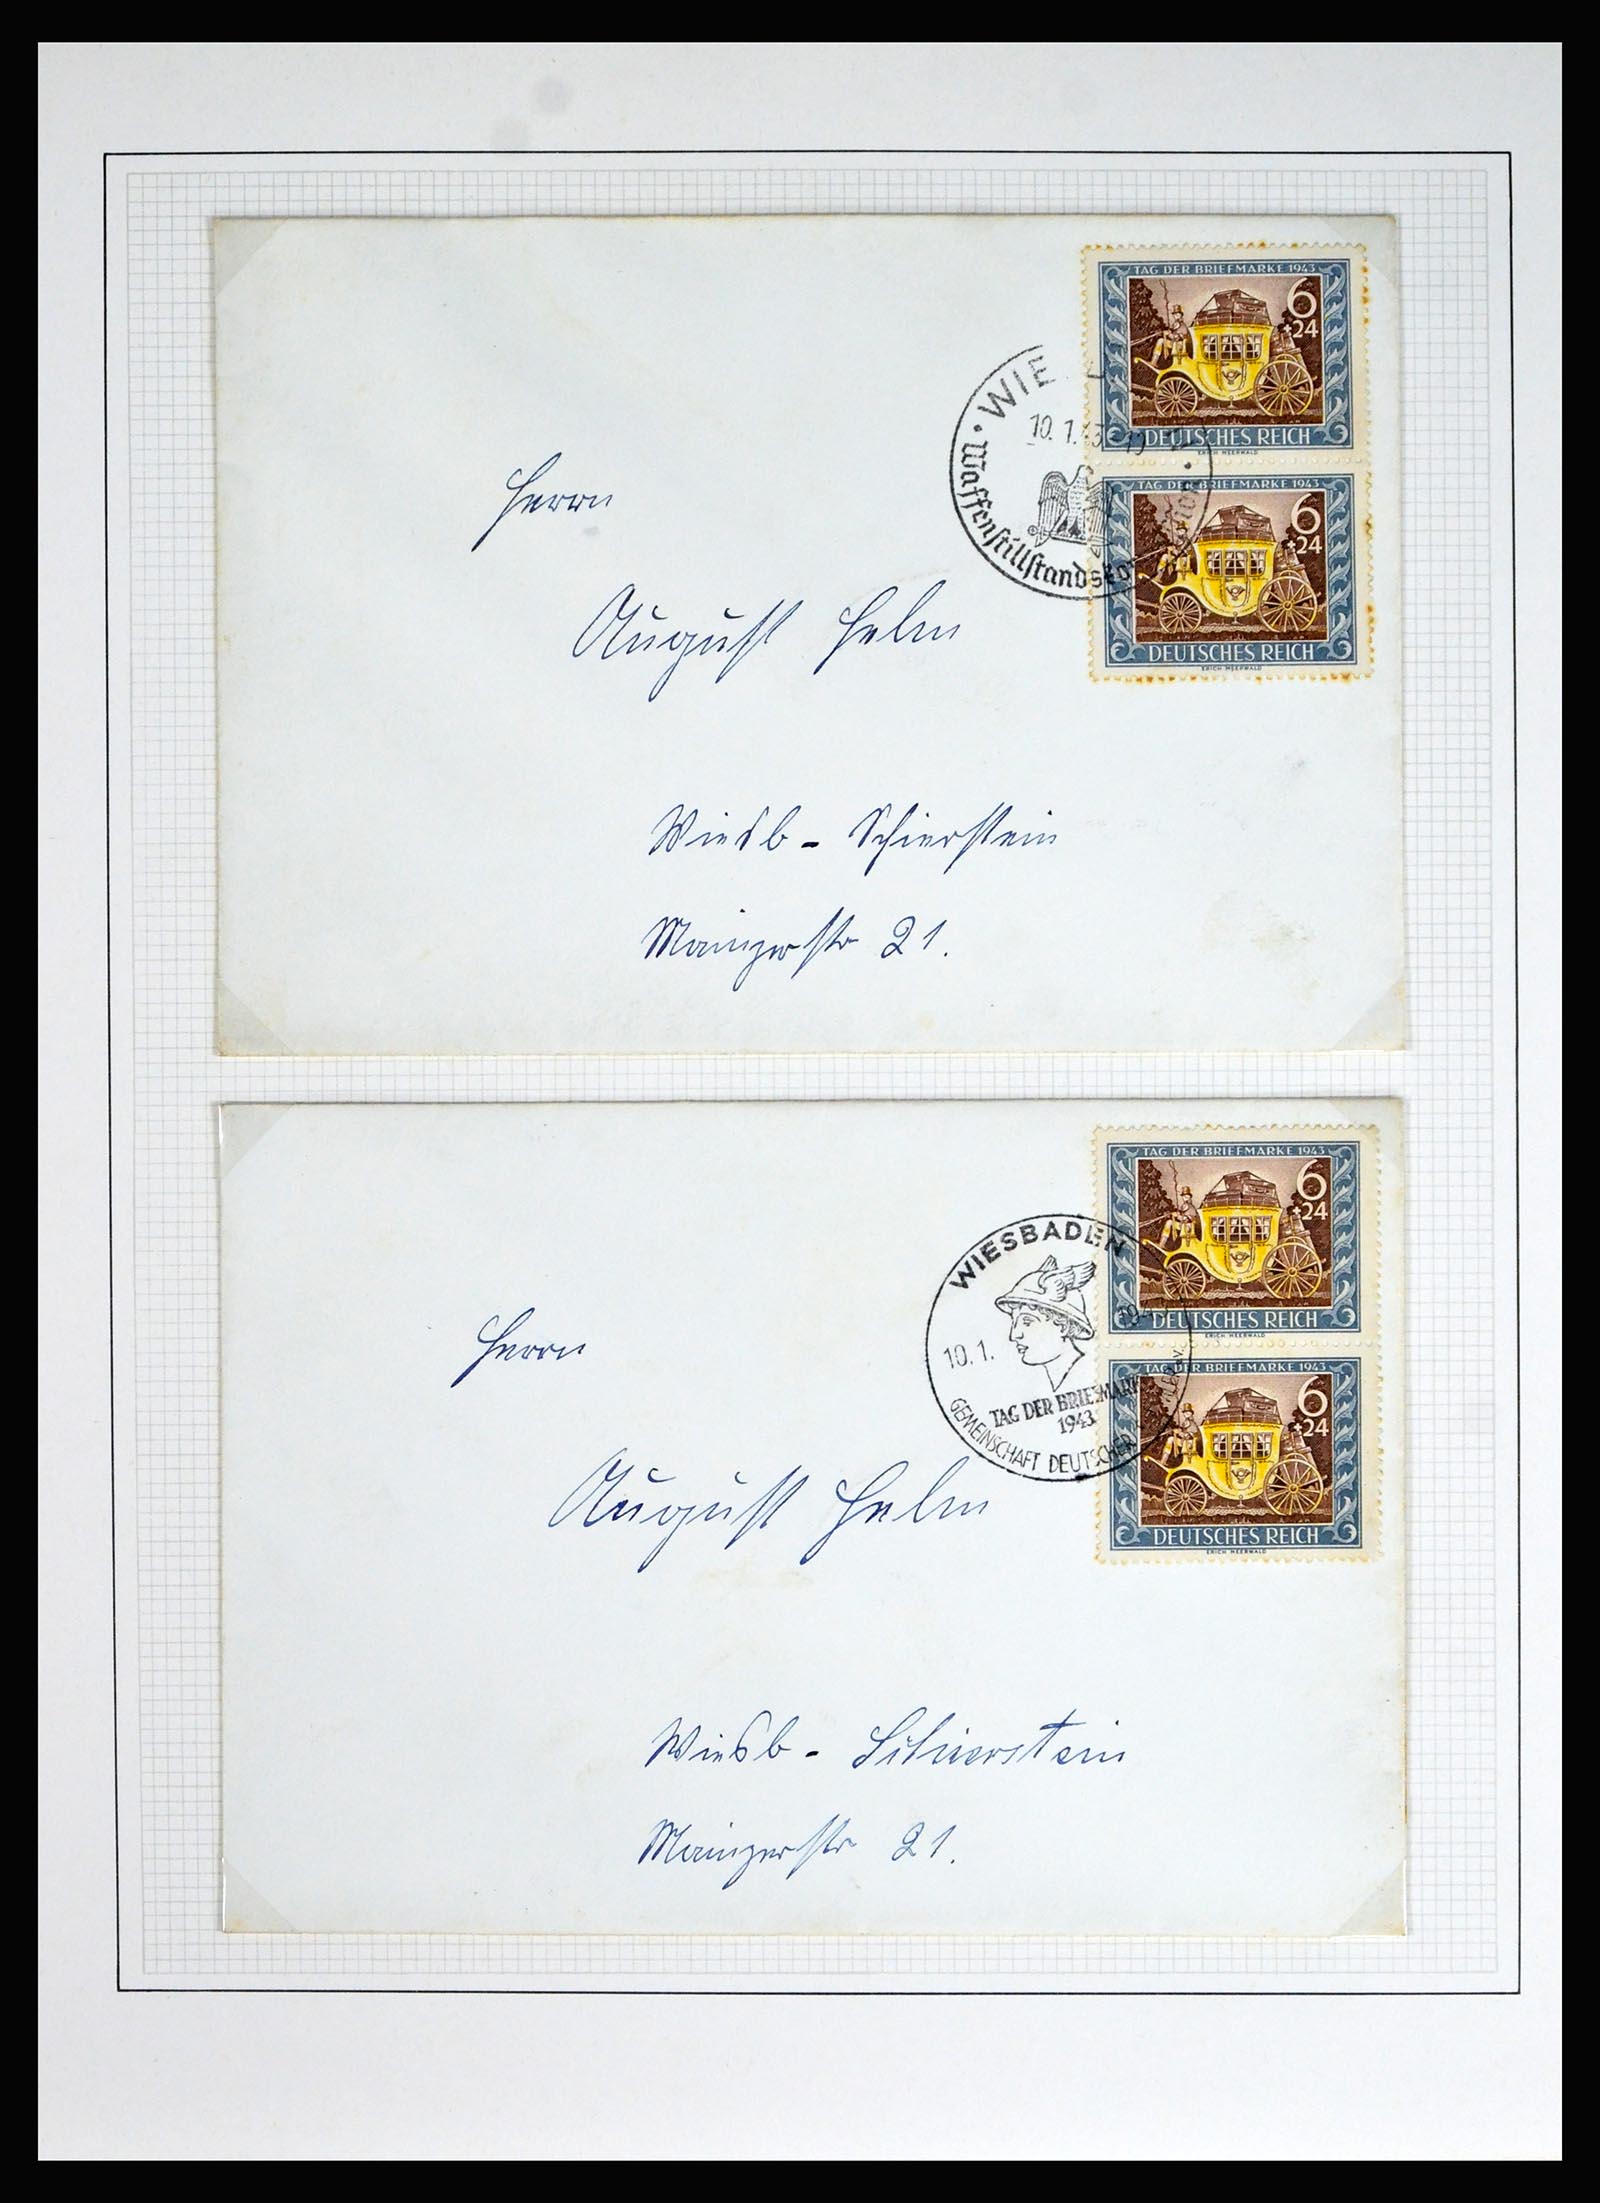 TAG DER BRIEFMARKE 1943
6
+24
DEUTSCHES REICH
ERICH MEERWALD
TAG DER BRIEFMARKE 1943
6
+24
DEUTSCHES REICH
ERICH MEERWALD
WIE
10.1.43
Waffenstillstandsko
Herrn
August Helm
Wiesb - Schierstein
Mainzerstr 21.
TAG DER BRIEFMARKE 1943
6
+24
DEUTSCHES REICH
ERICH MEERWALD
TAG DER BRIEFMARKE 1943
6
+24
DEUTSCHES REICH
ERICH MEERWALD
WIESBADEN
10.1.
TAG DER BRIEFMARKE
1943
GEMEINSCHAFT DEUTSCHER
Herrn
August Helm
Wiesb - Schierstein
Mainzerstr 21.